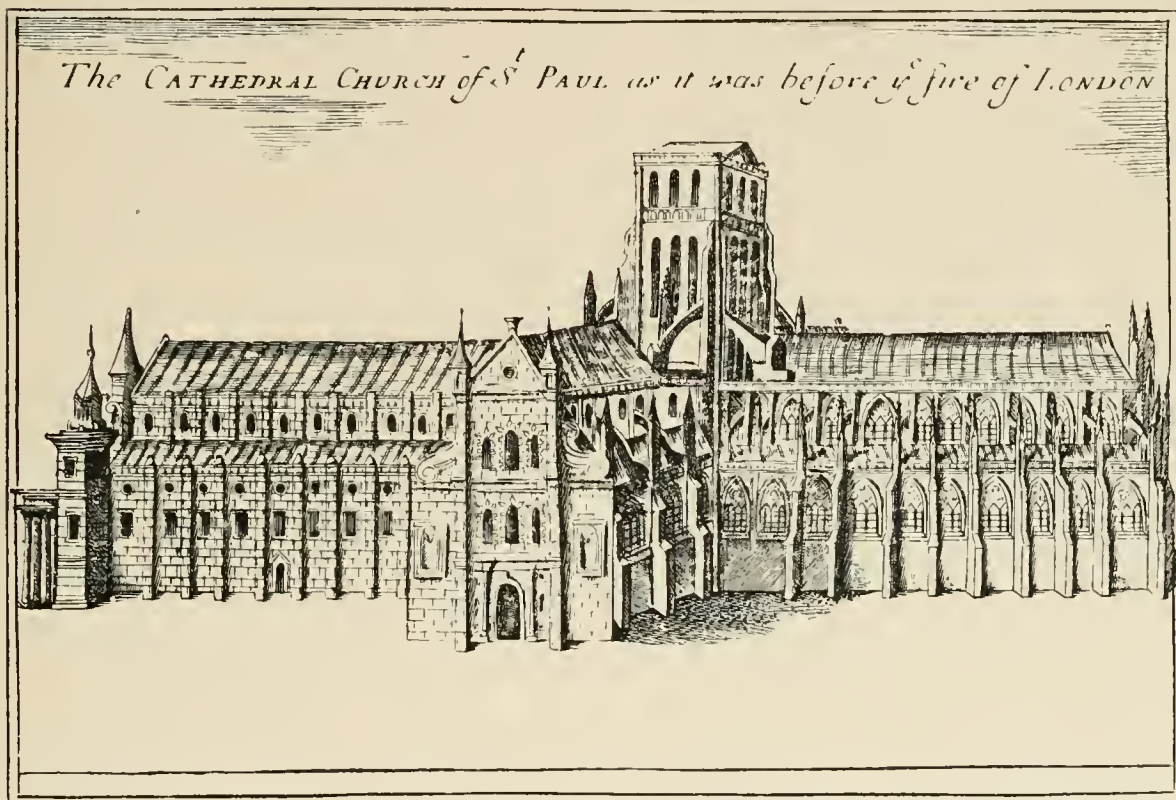 The CATHEDRAL CHURCH of St PAUL as it was before ye fire of LONDON